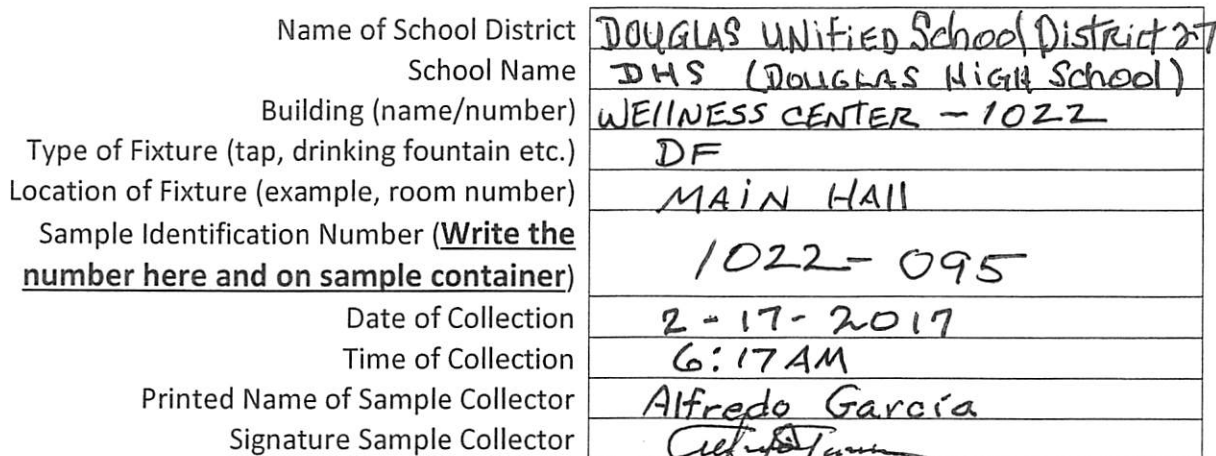 Name of School District DOUGLAS UNiFiED School District 27
School Name DHS (DOUGLAS HIGH School)
Building (name/number) WEllNESS CENTER - 1022
Type of Fixture (tap, drinking fountain etc.) DF
Location of Fixture (example, room number) MAiN HAll
Sample Identification Number (Write the
number here and on sample container) 1022-095
Date of Collection 2-17-2017
Time of Collection 6:17 AM
Printed Name of Sample Collector Alfredo Garcia
Signature Sample Collector